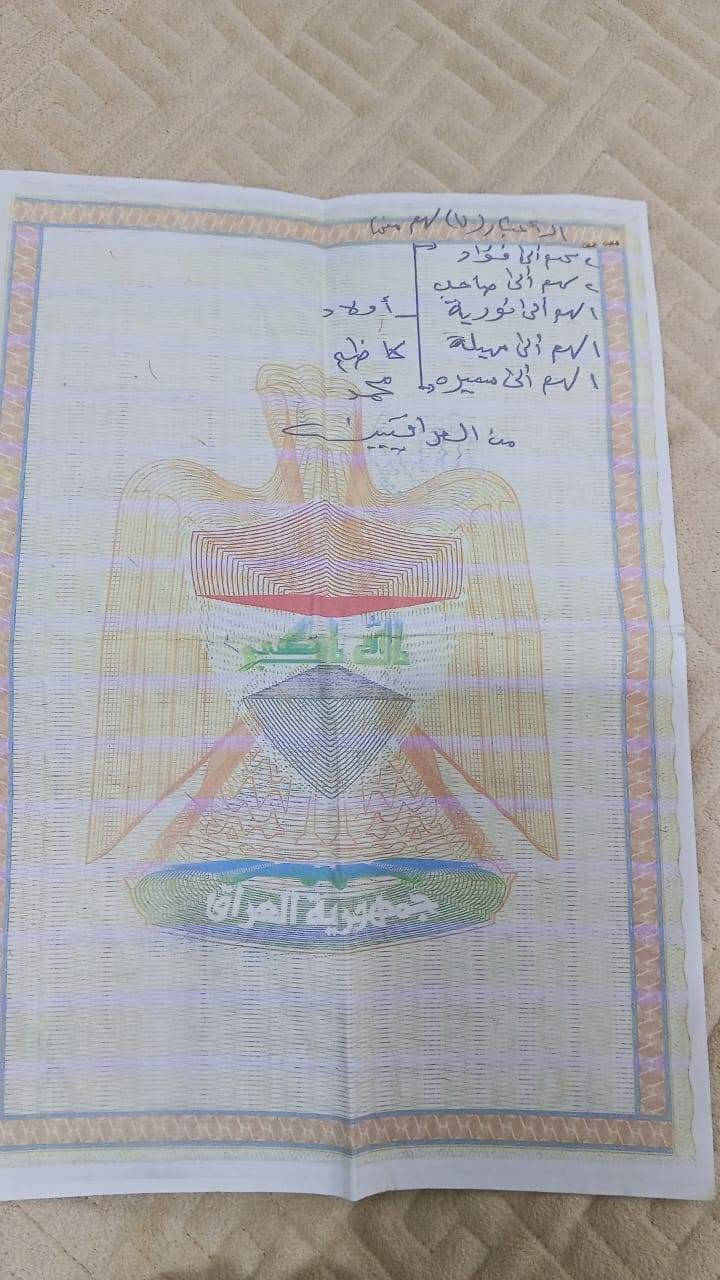 الاعتبار (٧) سهم منها
٢ سهم الى فؤاد
٢ سهم الى صاحب
١ سهم الى نورية
١ سهم الى سهيلة
١ سهم الى سميره
أولاد
كاظم
محمد
من العراقيين
الله اكبر
جمهورية العراق